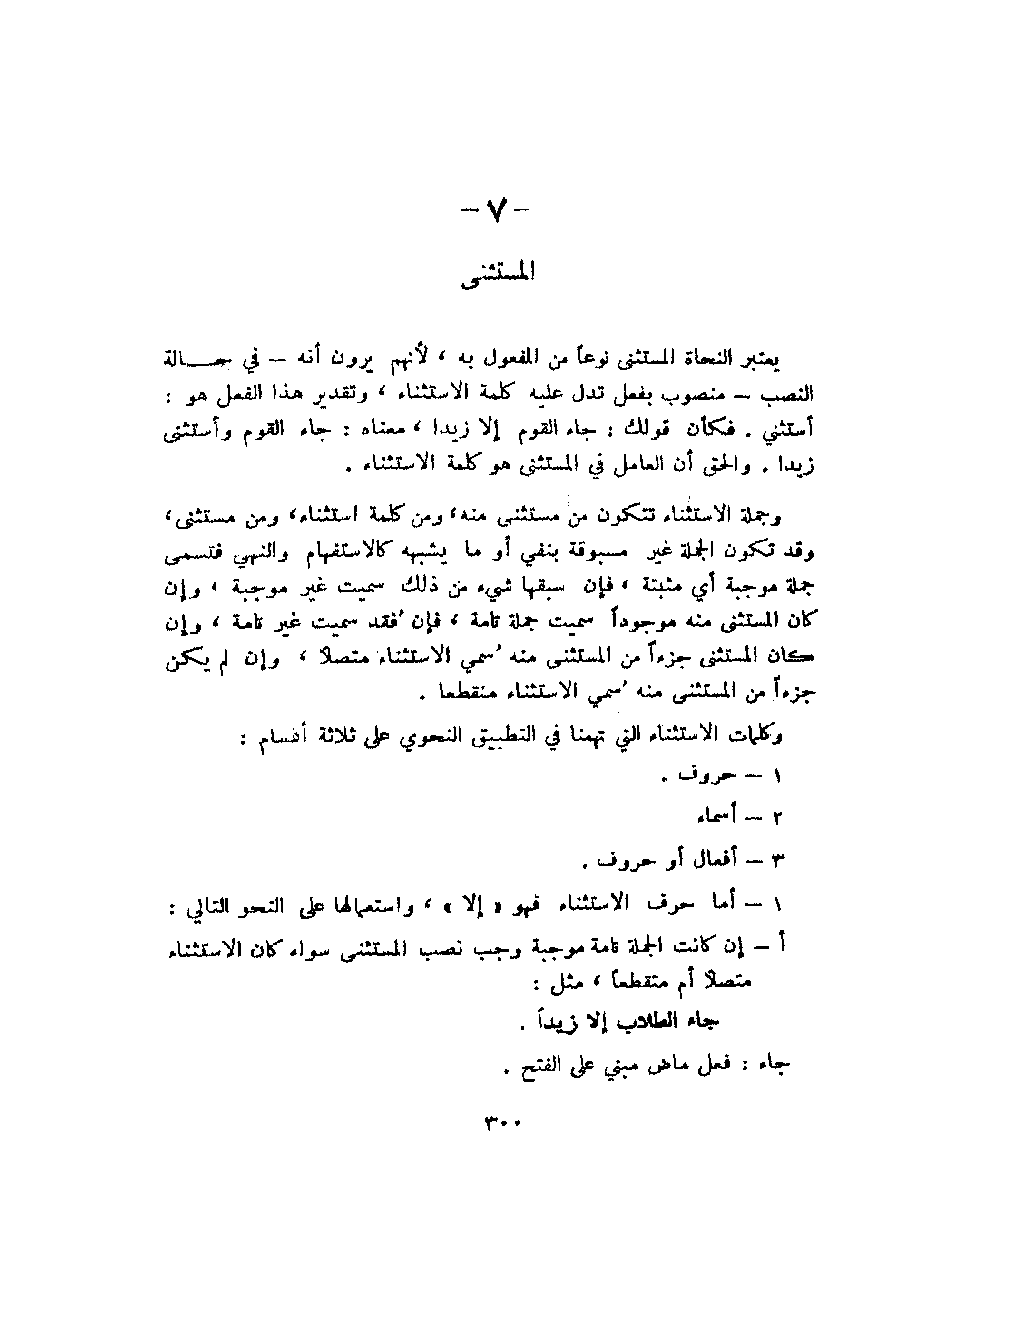 - ٧ -
المستثنى
يعتبر النحاة المستثنى نوعاً من المفعول به ، لأنهم يرون أنه — في حـــالة
النصب — منصوب بفعل تدل عليه كلمة الاستثناء ، وتقدير هذا الفعل هو :
أستثني . فكأن قولك : جاء القوم إلا زيدا ، معناه : جاء القوم وأستثنى
زيدا . والحق أن العامل في المستثنى هو كلمة الاستثناء .
وجملة الاستثناء تتكون من مستثنى منه، ومن كلمة استثناء، ومن مستثنى،
وقد تكون الجملة غير مسبوقة بنفي أو ما يشبهه كالاستفهام والنهي فتسمى
جملة موجبة أي مثبتة ، فإن سبقها شيء من ذلك سميت غير موجبة ، وإن
كان المستثنى منه موجوداً سميت جملة تامة ، فإن ُفقد سميت غير تامة ، وإن
كان المستثنى جزءاً من المستثنى منه ُسمي الاستثناء متصلاً ، وإن لم يكن
جزءاً من المستثنى منه ُسمي الاستثناء منقطعا .
وكلمات الاستثناء التي تهمنا في التطبيق النحوي على ثلاثة أقسام :
١ — حروف .
٢ — أسماء
٣ — أفعال أو حروف .
١ — أما حرف الاستثناء فهو « إلا » ، واستعمالها على النحو التالي :
أ — إن كانت الجملة تامة موجبة وجب نصب المستثنى سواء كان الاستثناء
متصلاً أم متقطعاً ، مثل :
جاء الطلاب إلا زيداً .
جاء : فعل ماض مبني على الفتح .
٣٠٠